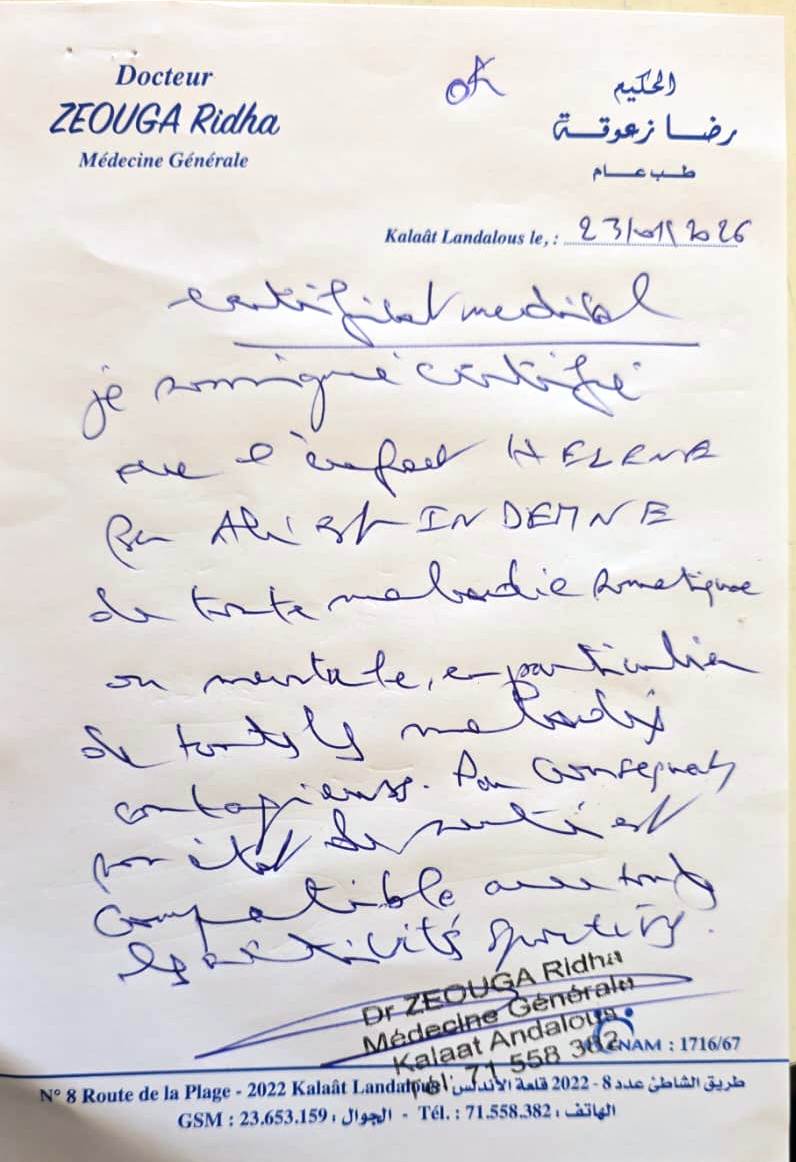 Docteur
ZEOUGA Ridha
Médecine Générale
ok
الحكيم
رضا زعوقة
طب عام
Kalaât Landalous le, : 23/01/2026
certificat medical
je soussigné certifie
que l'enfant HELENE
Ali est INDEMNE
de toute maladie somatique
ou mentale, en particulier
de toutes les maladies
contagieuses. Par conséquent
son état de santé est
compatible avec toutes
les activités sportives.
Dr ZEOUGA Ridha
Médecine Générale
Kalaat Andalous
Tél: 71 558 382
CNAM : 1716/67
N° 8 Route de la Plage - 2022 Kalaât Landalous طريق الشاطئ عدد 8 - 2022 قلعة الأندلس
GSM : 23.653.159 : الجوال - Tél. : 71.558.382 : الهاتف